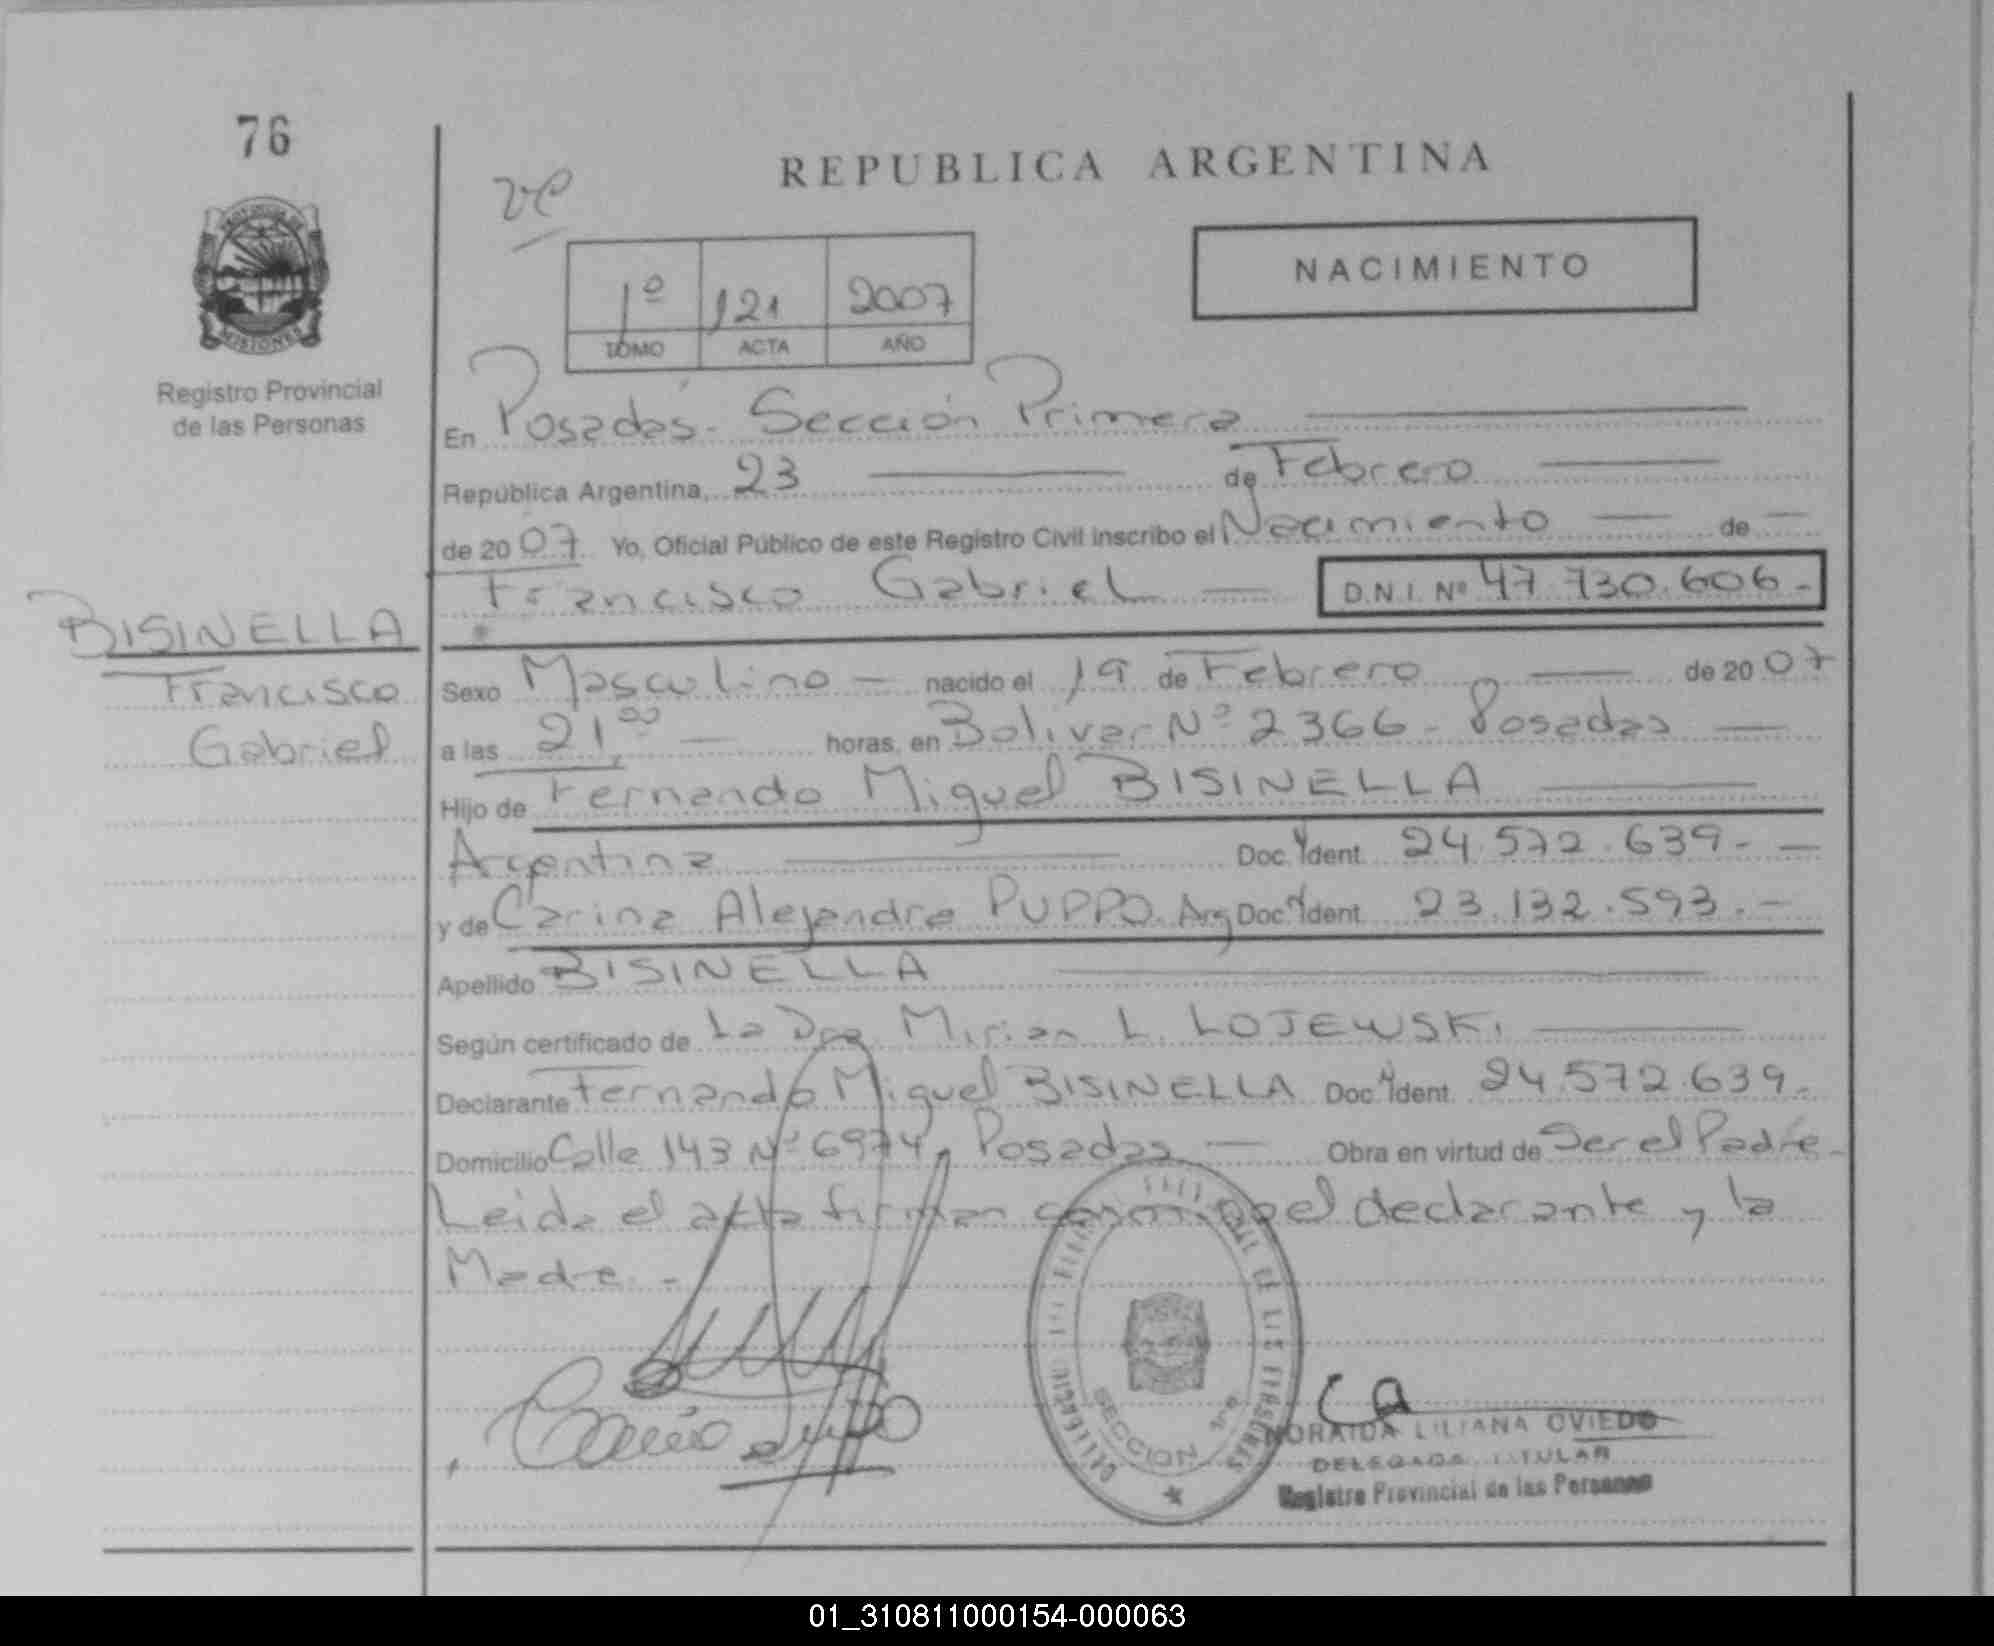 76
REPUBLICA ARGENTINA
PROVINCIA DE
MISIONES
Registro Provincial
de las Personas
NACIMIENTO
1º 121 2007
TOMO ACTA AÑO
En Posadas. Sección Primera
República Argentina, 23 de Febrero
de 2007 Yo, Oficial Público de este Registro Civil inscribo el Nacimiento de
Francisco Gabriel D.N.I. Nº 47.730.606.-
BISINELLA
Francisco
Gabriel
Sexo Masculino nacido el 19 de Febrero de 2007
a las 21,00 horas, en Bolivar Nº 2366 - Posadas
Hijo de Fernando Miguel BISINELLA
Argentina Doc. Ident. 24.572.639.-
y de Carina Alejandra PUPPO. Arg Doc. Ident. 23.132.593.-
Apellido BISINELLA
Según certificado de La Dra. Mirian L. LOJEWSKI
Declarante Fernando Miguel BISINELLA Doc. Ident. 24.572.639.-
Domicilio Calle 143 Nº 6974, Posadas Obra en virtud de Ser el Padre.-
Leida el acta firman conmigo el declarante y la
Madre.-
SECCION 1ra
NORAIDA LILIANA OVIEDO
DELEGADA TITULAR
Registro Provincial de las Personas
01_310811000154-000063